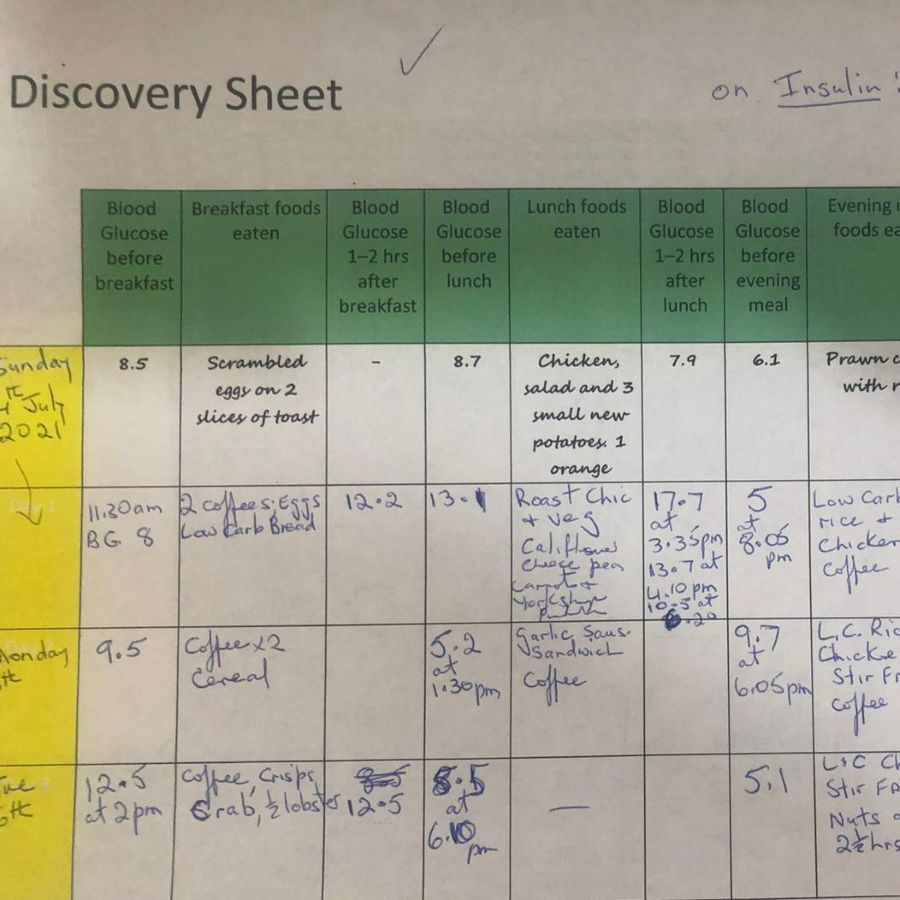 Discovery Sheet
on Insulin
Blood
Glucose
before
breakfast
Breakfast foods
eaten
Blood
Glucose
1–2 hrs
after
breakfast
Blood
Glucose
before
lunch
Lunch foods
eaten
Blood
Glucose
1–2 hrs
after
lunch
Blood
Glucose
before
evening
meal
Evening
foods
Sunday
July
2021
8.5
Scrambled
eggs on 2
slices of toast
-
8.7
Chicken,
salad and 3
small new
potatoes. 1
orange
7.9
6.1
Prawn
with
11.30am
BG 8
2 coffees. Eggs
Low Carb Bread
12.2
13.1
Roast Chic
+ veg
Califlower
cheese peas
Carrot +
Yorkshire
17.7
at
3.35pm
13.7 at
4.10 pm
10.5 at
6.20
5
at
8.05
pm
Low Carb
rice +
Chicken
Coffee
Monday
9.5
Coffee x2
Cereal
5.2
at
1.30pm
Garlic Saus.
Sandwich
Coffee
9.7
at
6.05pm
L.C. Ric
Chicke
Stir Fr
Coffee
Tue
12.5
at 2pm
Coffee, Crisps,
Crab, ½ lobster
12.5
5.5
at
6.10
pm
—
5.1
L&C Ch
Stir
Nuts
2½ hrs